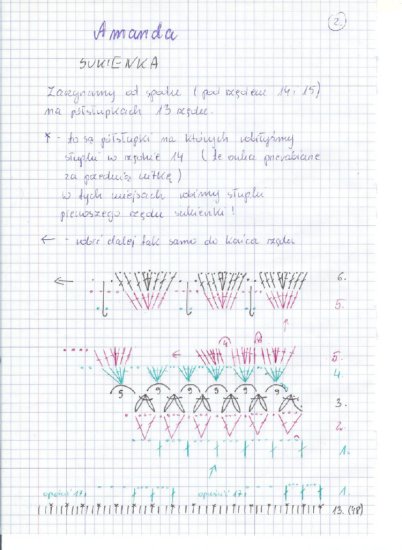 2.
Amanda
SUKIENKA
Zaczynamy od spodu (pod rzędem 14 i 15)
na półsłupkach 13 rzędu.
* - to są półsłupki na których robiłyśmy
słupki w rzędzie 14 (te
za przednią nitkę)
w tych miejscach robimy słupki
pierwszego rzędu sukienki!
← - robić dalej tak samo do końca rzędu
6.
5.
5.
4.
5 9 9 9 9 9 5
3.
2.
1.
opuścić 17 opuścić 17 1.
13. (48)